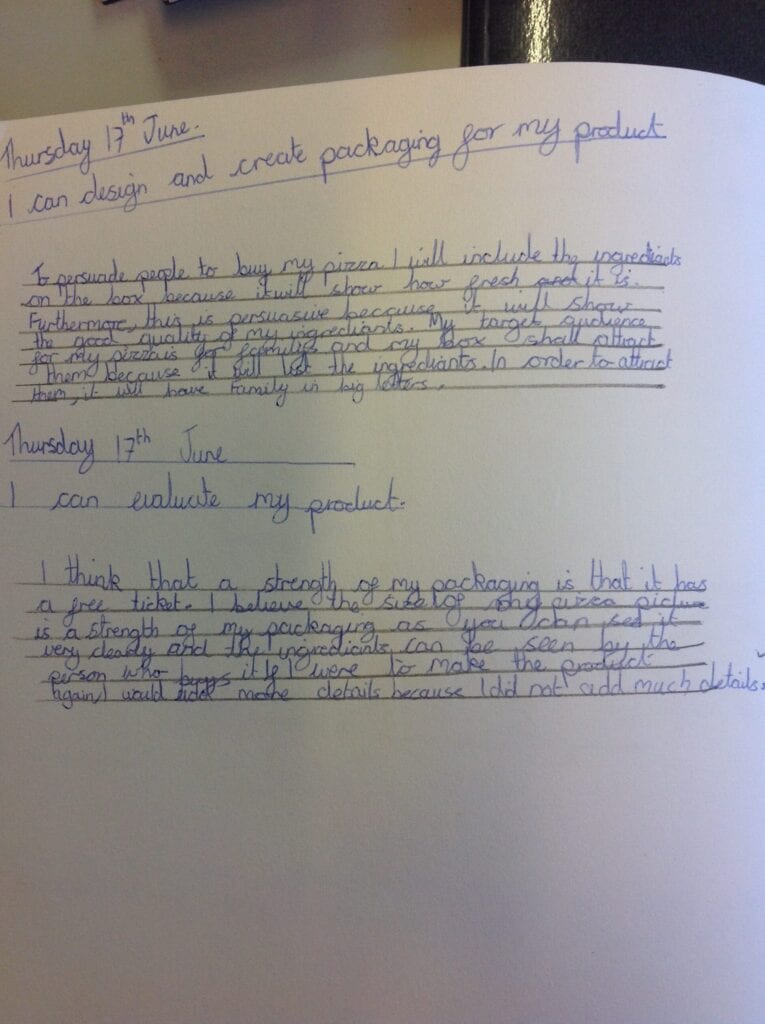 Thursday 17th June.
I can design and create packaging for my product
To persuade people to buy my pizza I will include the ingrediants
on the box because it will show how fresh and it is.
Furthermore, this is persuasive because it will show
the good quality of my ingrediants. My target audience
for my pizza is for families and my box shall attract
them because it will list the ingrediants. In order to attract
them, it will have Family in big letters.
Thursday 17th June
I can evaluate my product.
I think that a strength of my packaging is that it has
a free ticket. I believe the size of my pizza picture
is a strength of my packaging as you can see it
very clearly and the ingrediants can be seen by the
person who buys it If I were to make the product
again, I would add more details because I did not add much details.